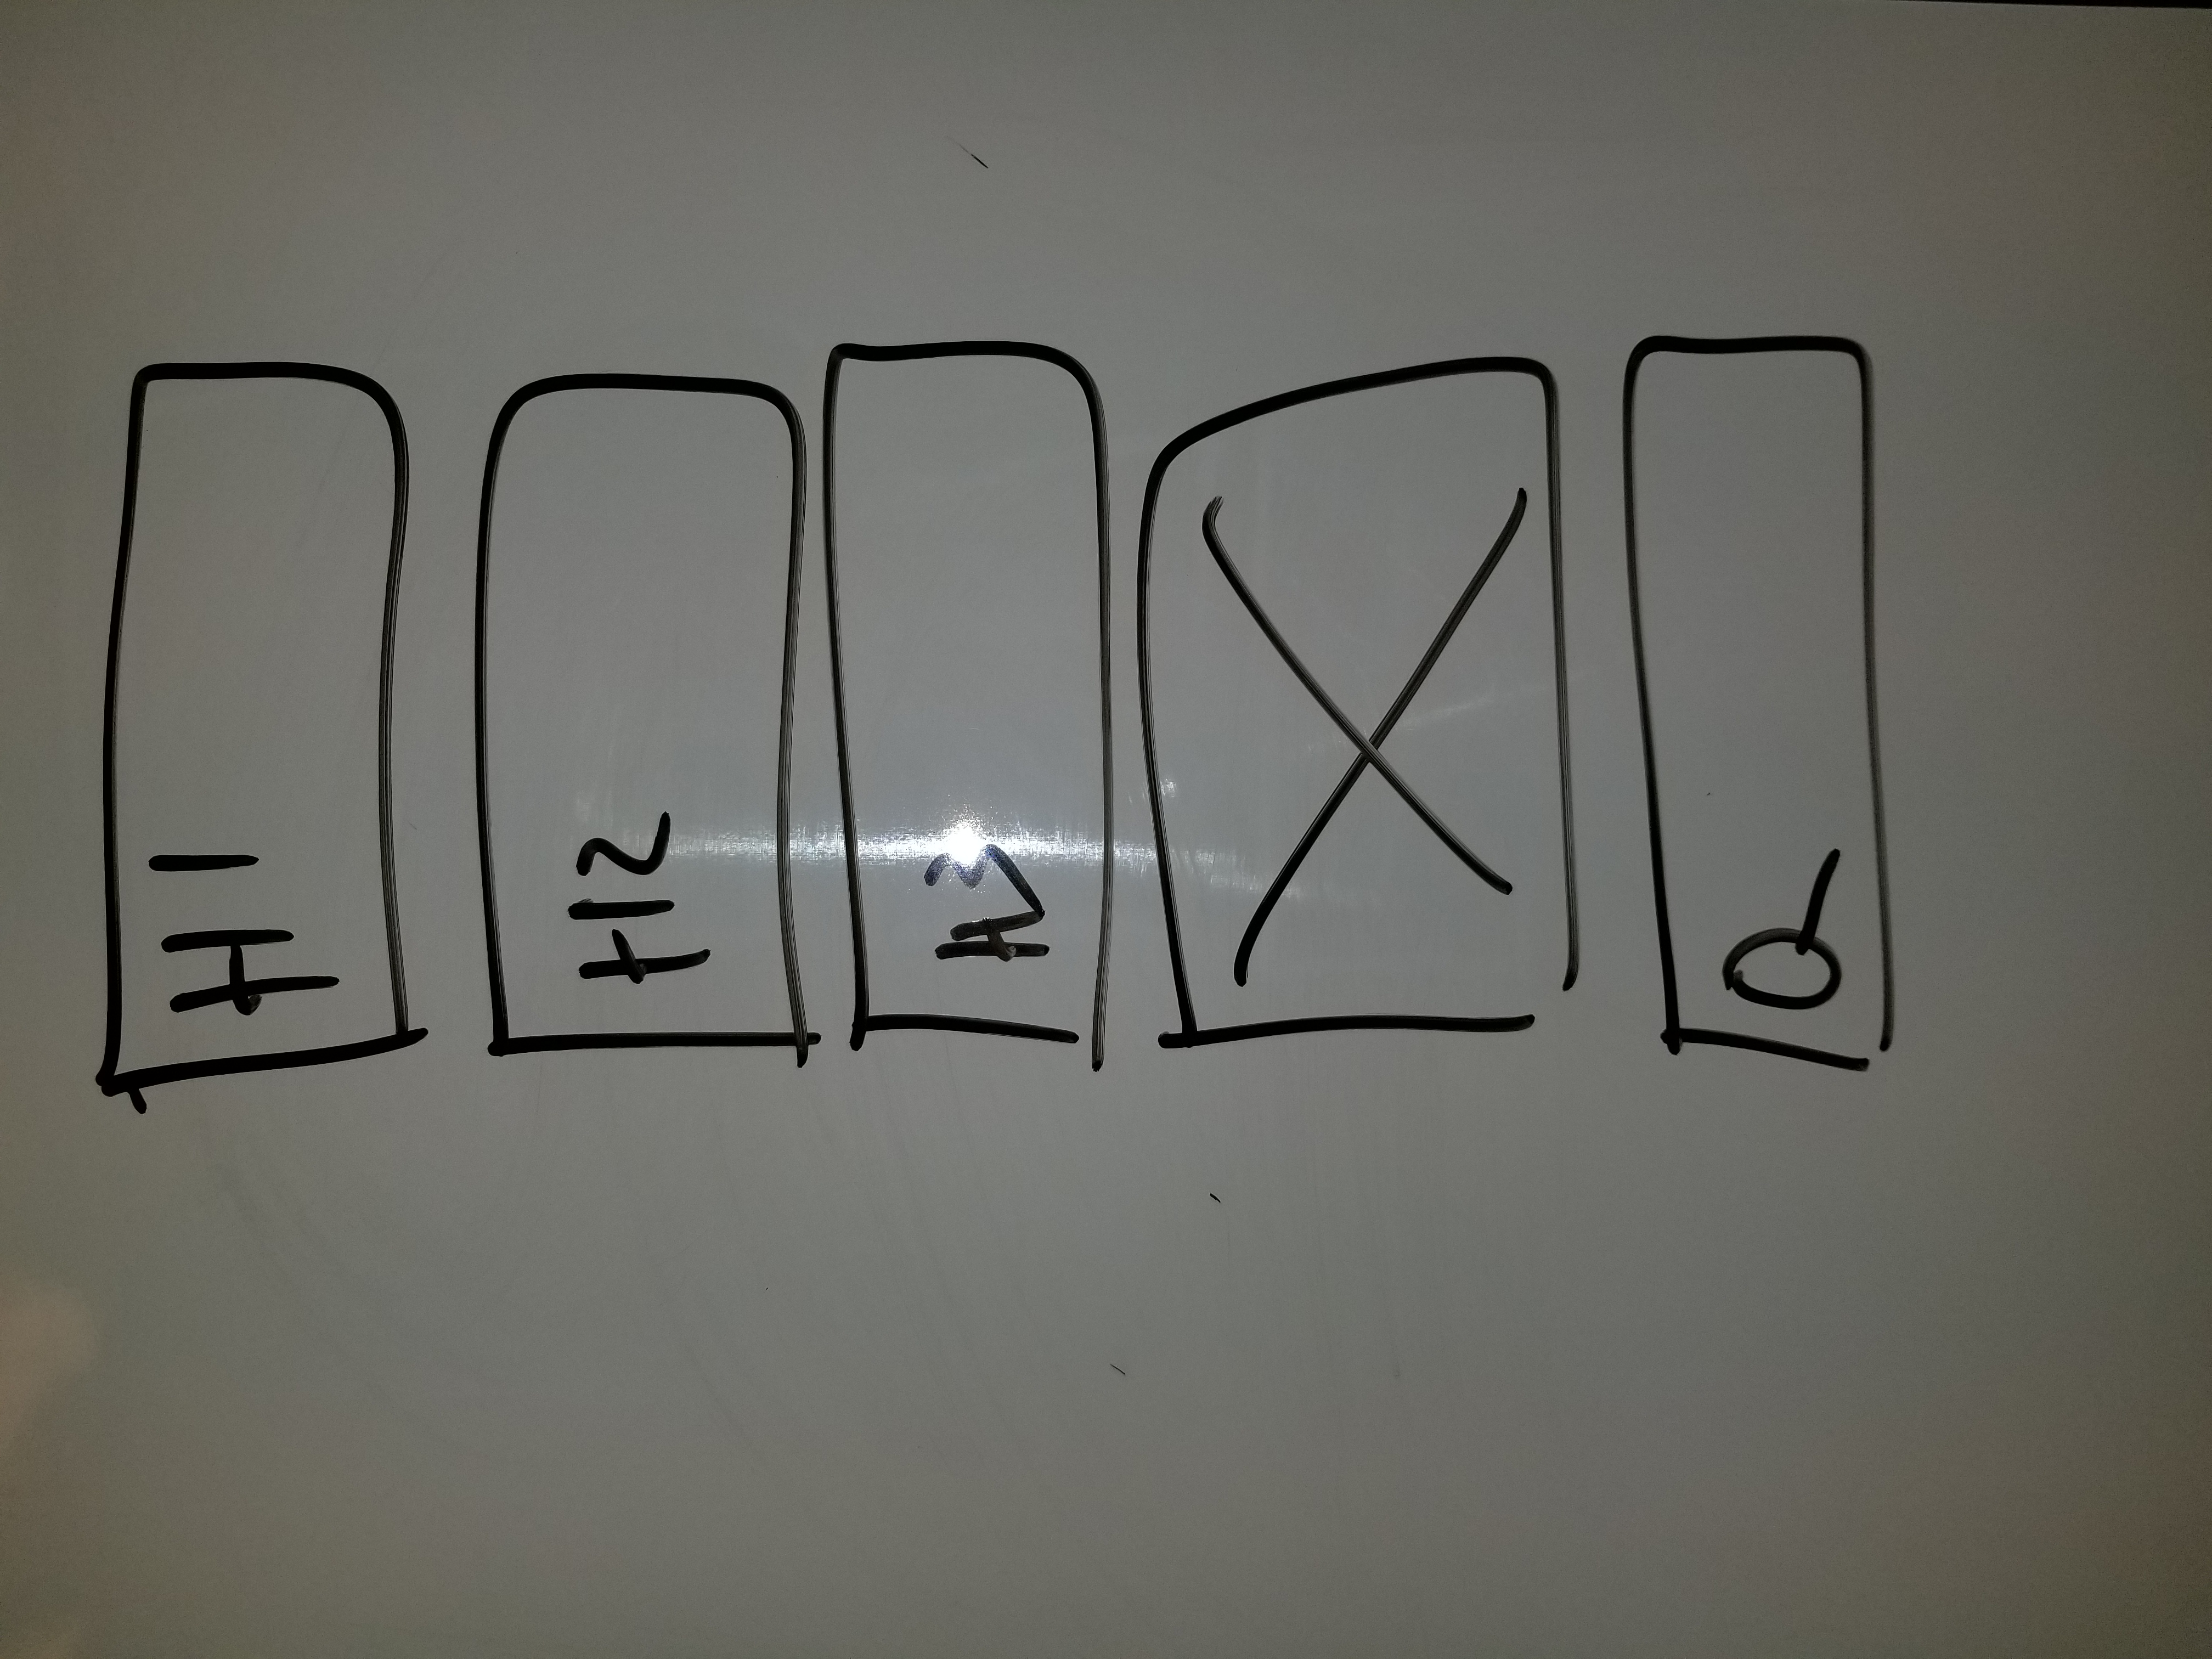 H1
H2
H3
Q